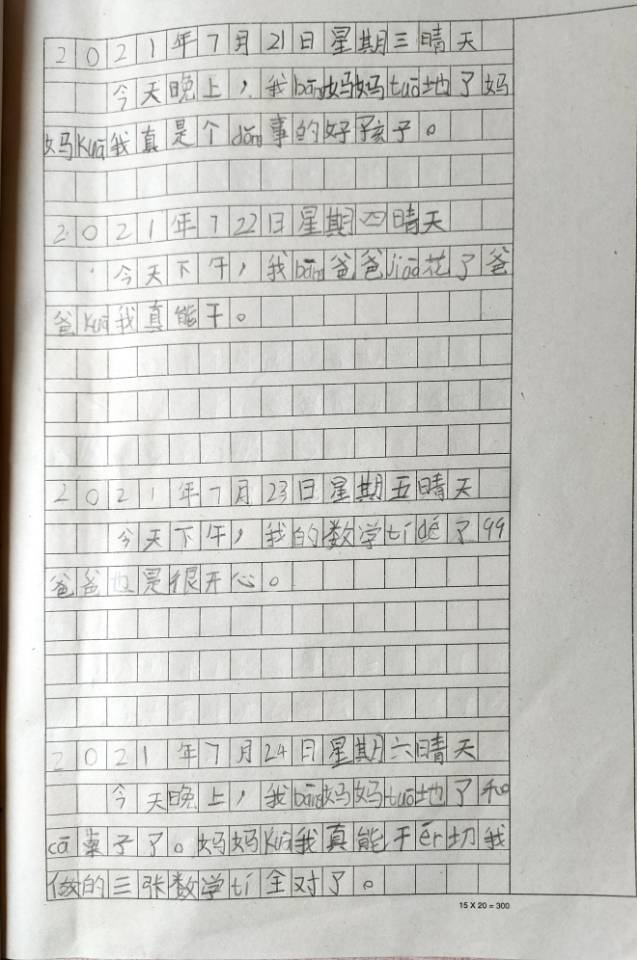 2021年7月21日星期三晴天
今天晚上，我bānɡ妈妈tuō地了妈
妈kuā我真是个dǒnɡ事的好孩子。
2021年722日星期四晴天
今天下午，我bānɡ爸爸jiāo花了爸
爸kuā我真能干。
2021年7月23日星期五晴天
今天下午，我的数学tí dé了99
爸爸也是很开心。
2021年7月24日星期六晴天
今天晚上，我bānɡ妈妈tuō地了和
cā桌子了。妈妈kuā我真能干ěr切我
做的三张数学tí全对了。
15 X 20 = 300